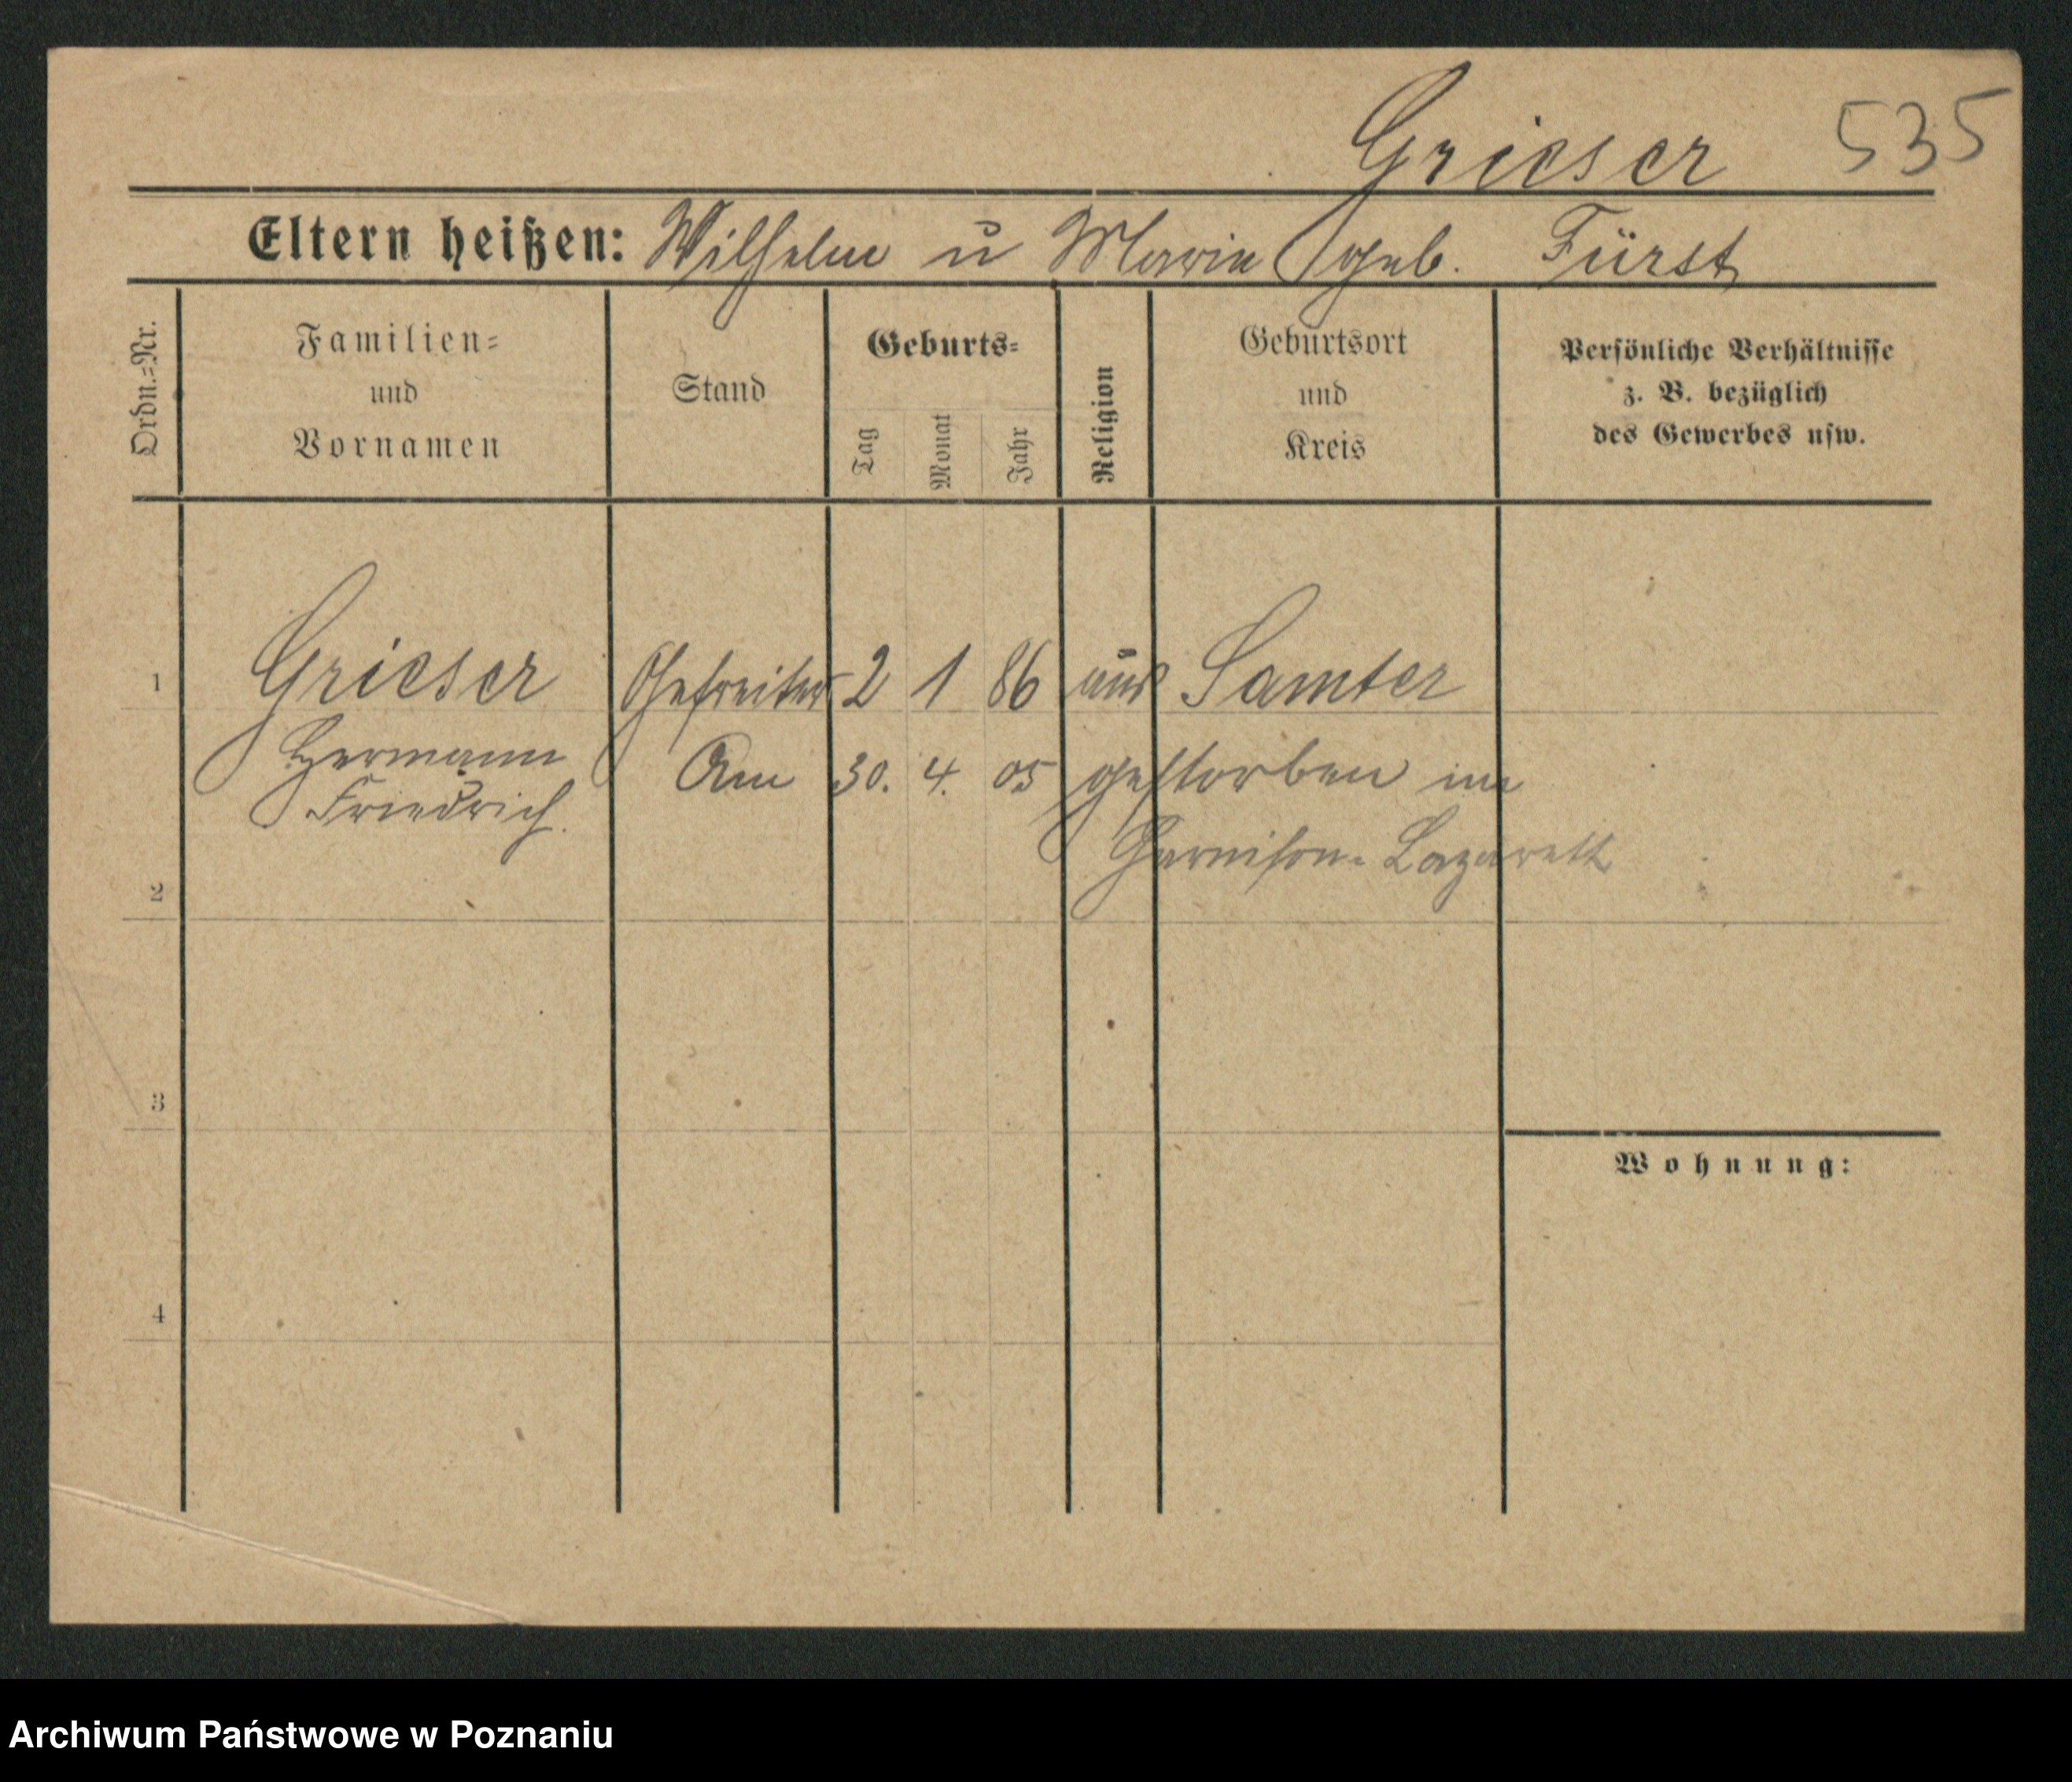 Grieser 535
Eltern heißen: Wilhelm u Marie geb. Fürst
Ordn.=Nr.
Familien=
und
Vornamen
Stand
Geburts=
Tag
Monat
Jahr
Religion
Geburtsort
und
Kreis
Persönliche Verhältnisse
z. B. bezüglich
des Gewerbes usw.
1 Grieser Gefreiter 2 1 86 Samter
Hermann Am 30. 4. 05 gestorben im
Friedrich.
Garnison-Lazarett
2
3
Wohnung:
4
Archiwum Państwowe w Poznaniu